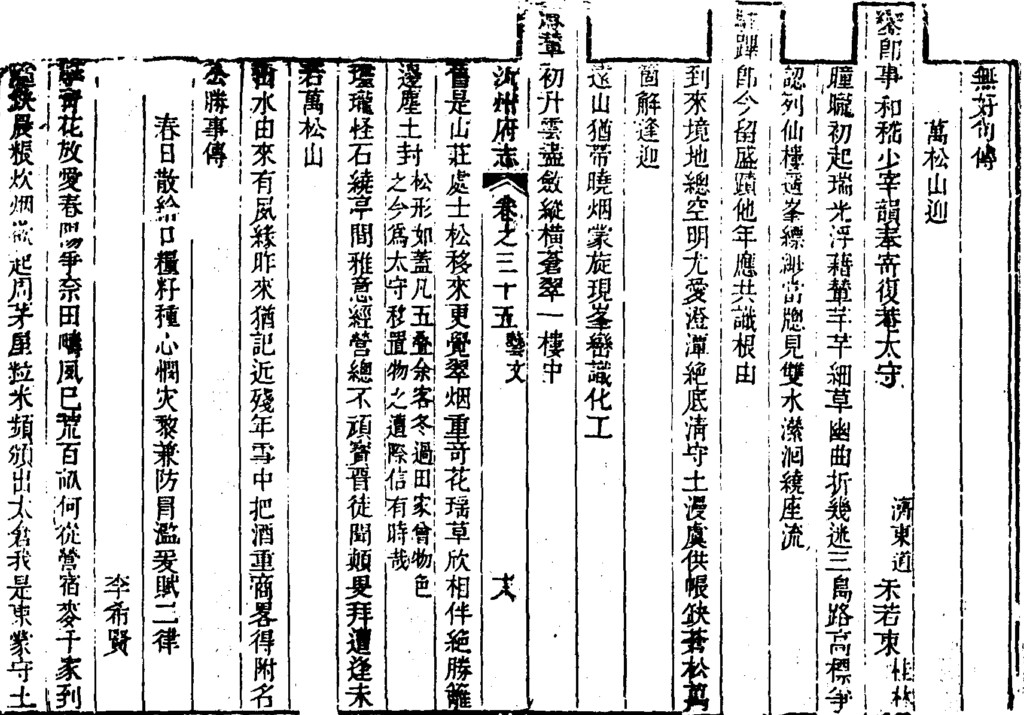 無好句傳
萬松山迎
鑾即事和嵇少宰韻奉寄復菴太守
濟東道 朱若東 桂林
曈曨初起瑞光浮藉輦芊芊細草幽曲折幾迷三島路高標爭
認列仙樓遥峯縹緲當牕見雙水瀠洄繞座流
駐蹕即今留盛蹟他年應共識根由
到來境地總空明尤愛澄潭絶底清守土漫虞供帳缺蒼松萬
箇解逢迎
遠山猶帶曉烟蒙旋現峯巒識化工
鳳輦初升雲盡斂縱橫蒼翠一樓中
沂州府志 卷之三十五 藝文
舊是山莊處士松移來更覺翠烟重奇花瑶草欣相伴絶勝籬
邊塵土封 松形如蓋凡五叠余客冬過田家曾物色
之今爲太守移置物之遭際信有時哉
瓏怪石繞亭間雅意經營總不頑寳晋徒聞顛叟拜遭逢未
若萬松山
水由來有夙緣昨來猶記近殘年雪中把酒重商畧得附名
公勝事傳
春日散給口糧籽種心憫灾黎兼防冐濫爰賦二律
李希賢
青花放愛春陽爭奈田疇風已荒百畝何從營宿麥千家到
缺晨糇炊烟欲起周茅屋粒米頻頒出太倉我是東蒙守土